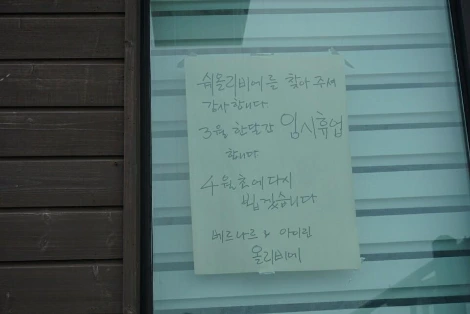 쉐올리비에를 찾아 주셔
감사합니다
3월 한달간 임시휴업
합니다
4월초에 다시
뵙겠습니다
베르나르 & 아이린
올리비에